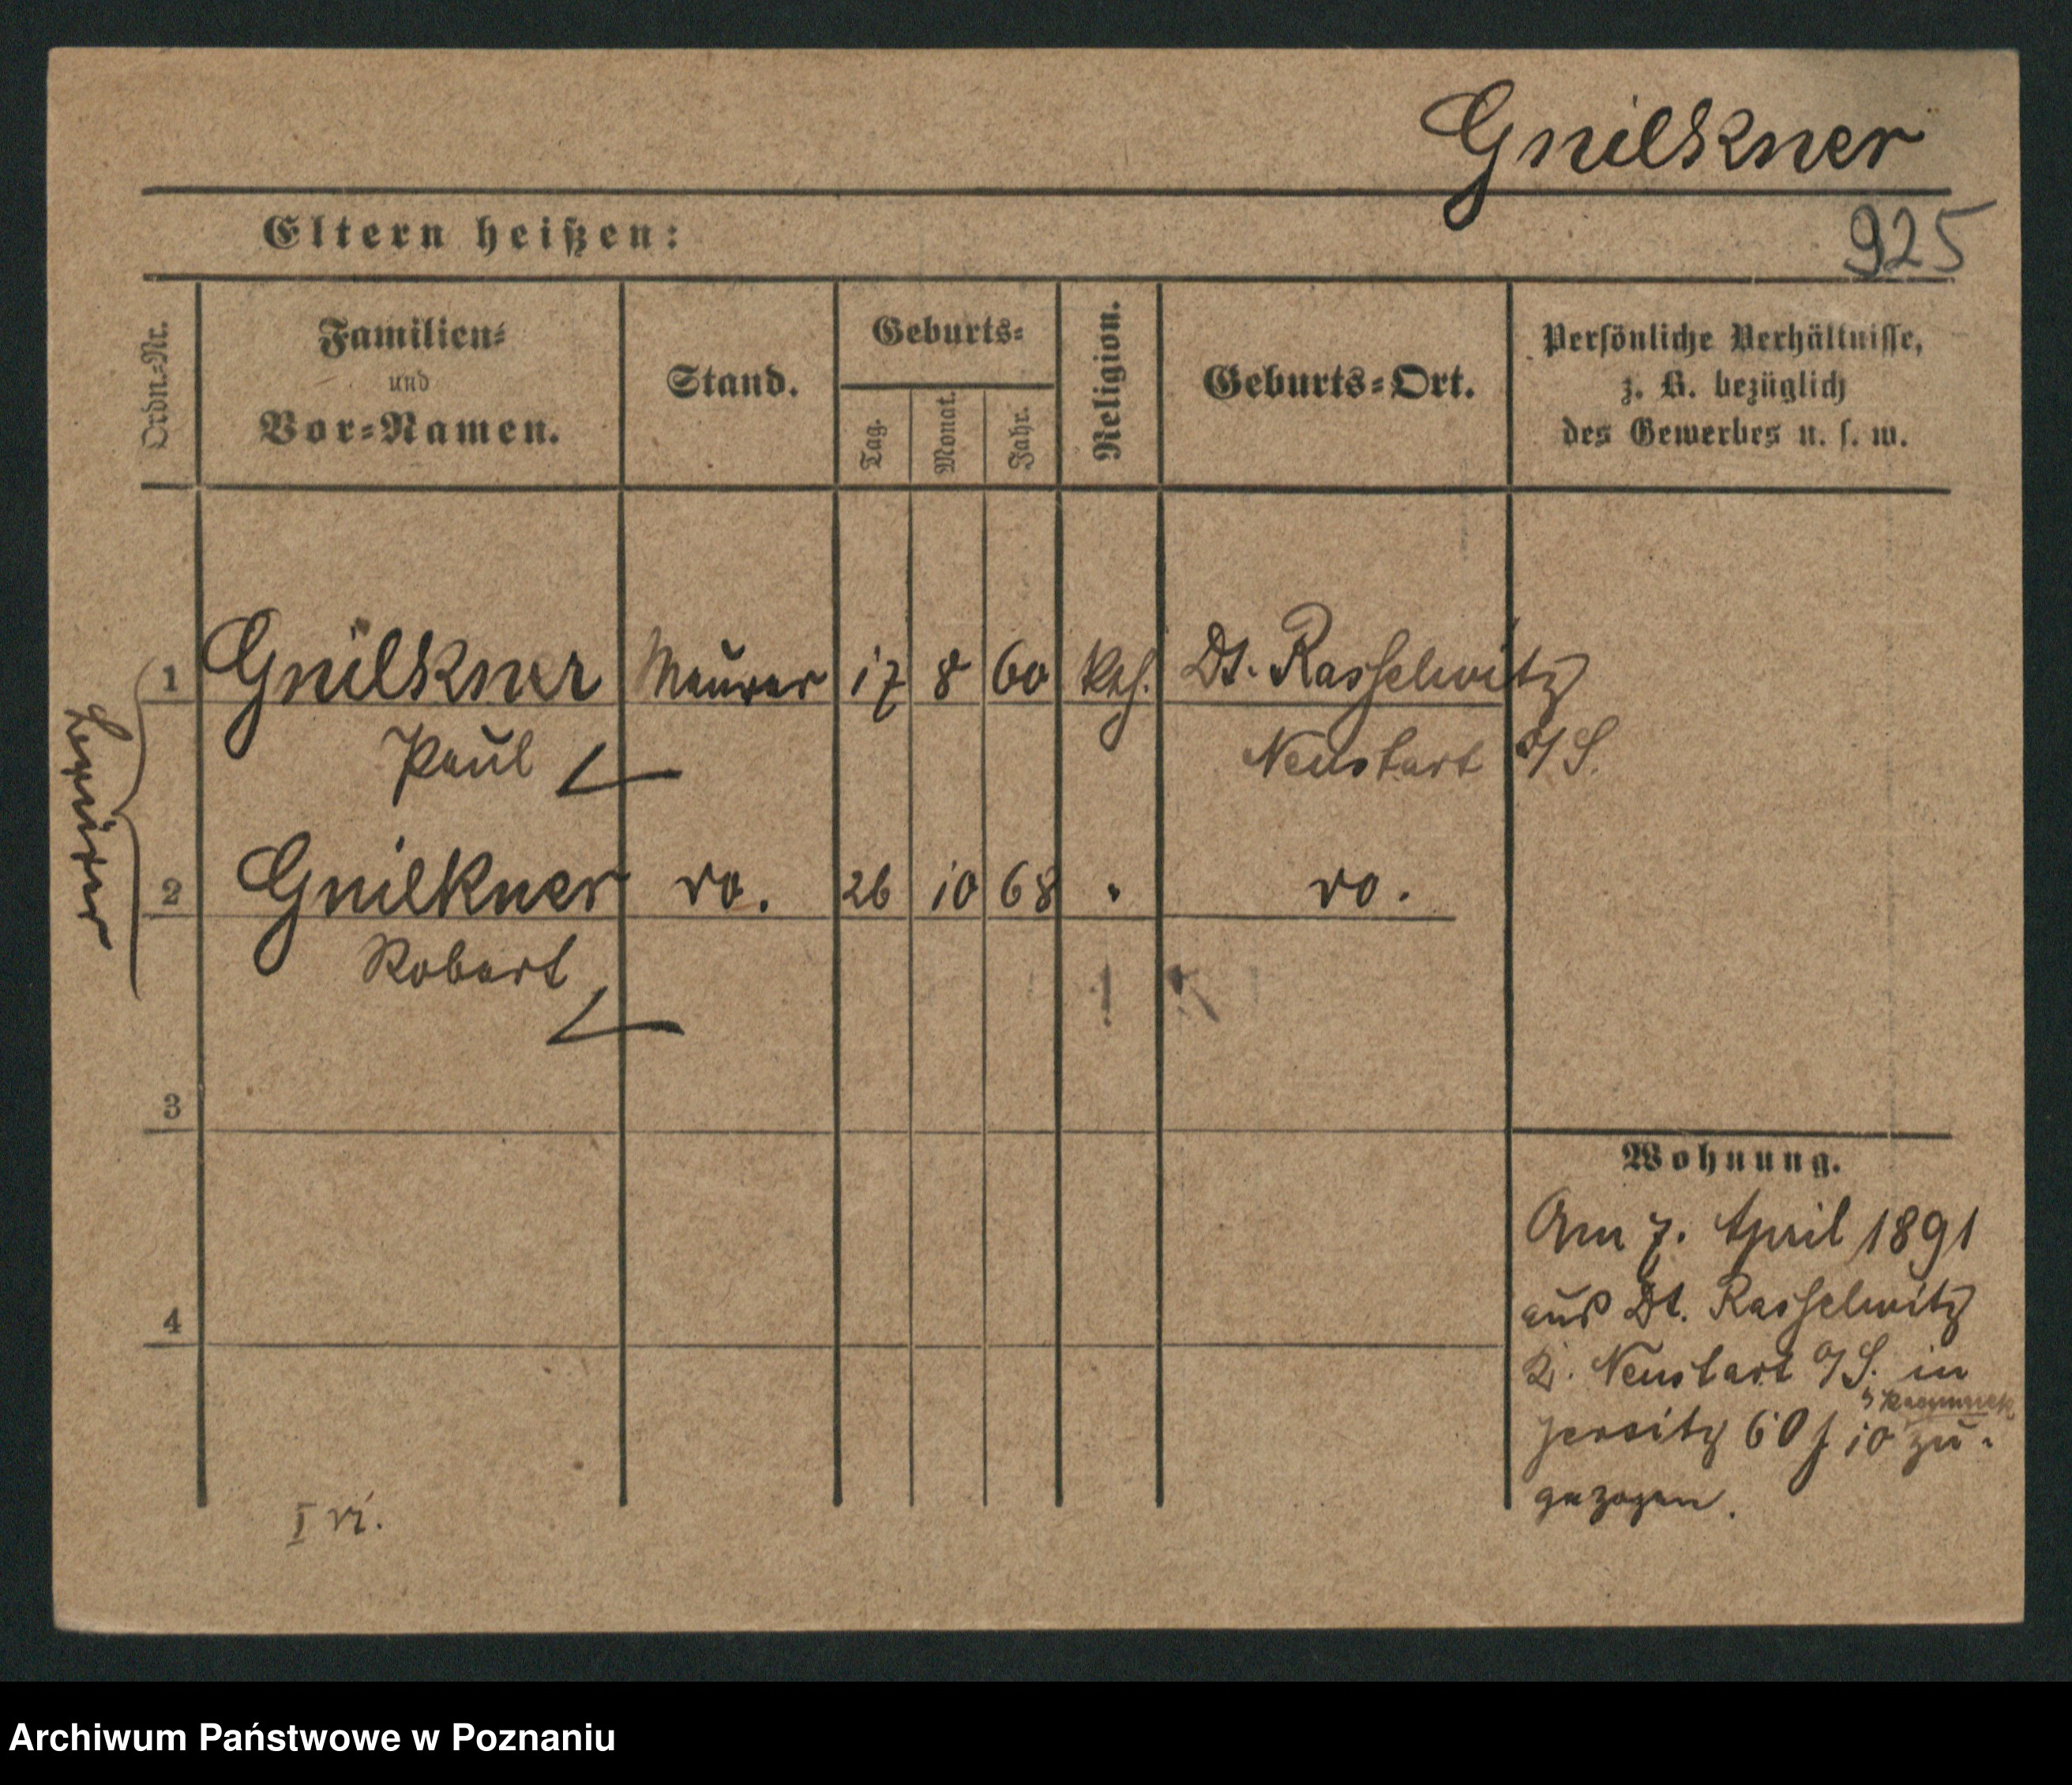 Gnilkner
925
Eltern heißen:
Ordn.-Nr.
Familien-
und
Vor-Namen.
Stand.
Geburts-
Tag.
Monat.
Jahr.
Religion.
Geburts-Ort.
Persönliche Verhältnisse,
z. B. bezüglich
des Gewerbes u. s. w.
1 Gnilkner Maurer 17 8 60 kath. Dt. Rasselwitz
Paul Neustadt O/S.
Brüder
2 Gnilkner do. 26 10 68 " do.
Robert
3
4
Wohnung.
Am 7. April 1891
aus Dt. Rasselwitz
Kr. Neustadt O/S. in
Jersitz 60 f. 10 zu-
gezogen.
Archiwum Państwowe w Poznaniu